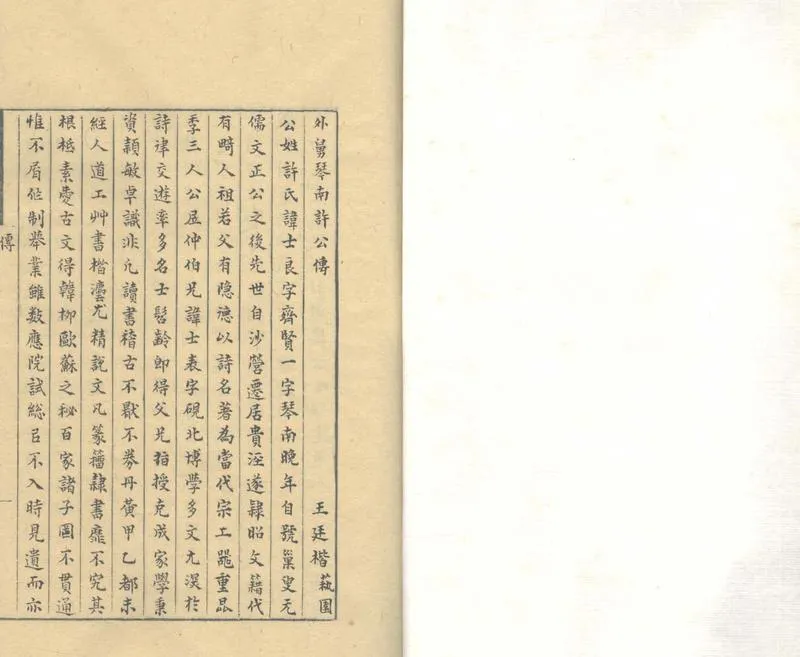 外舅琴南許公傳 王廷楷蓻園
公姓許氏諱士良字齊賢一字琴南晚年自號巢叟元
儒文正公之後先世自沙營遷居貴涇遂隸昭文籍代
有畸人祖若父有隐德以詩名著為當代宗工罷重昆
季三人公居仲伯兄諱士表字硯北博學多文尤深於
詩律交遊率多名士髫齡即得父兄指授克成家學秉
資穎敏卓識非凡讀書稽古不厭不劵丹黃甲乙都未
經人道工艸書楷灋尤精說文凡篆籀隸書靡不究其
根柢素愛古文得韓柳歐蘇之秘百家諸子罔不貫通
惟不屑作制舉業雖数應院試総㠯不入時見遺而亦
傳
一